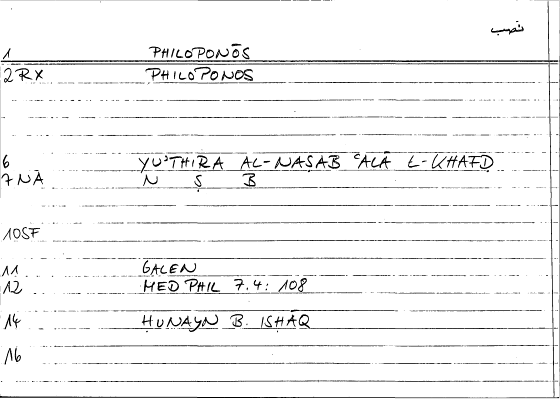 نصب
1 PHILOPONŌS
2 RX PHILOPONOS
6 YUʾTHIRA AL-NAṢAB ʿALĀ L-KHAFḌ
7 NA N Ṣ B
10SF
11 GALEN
12 MED PHIL 7.4: 108
14 ḤUNAYN B. ISḤĀQ
16